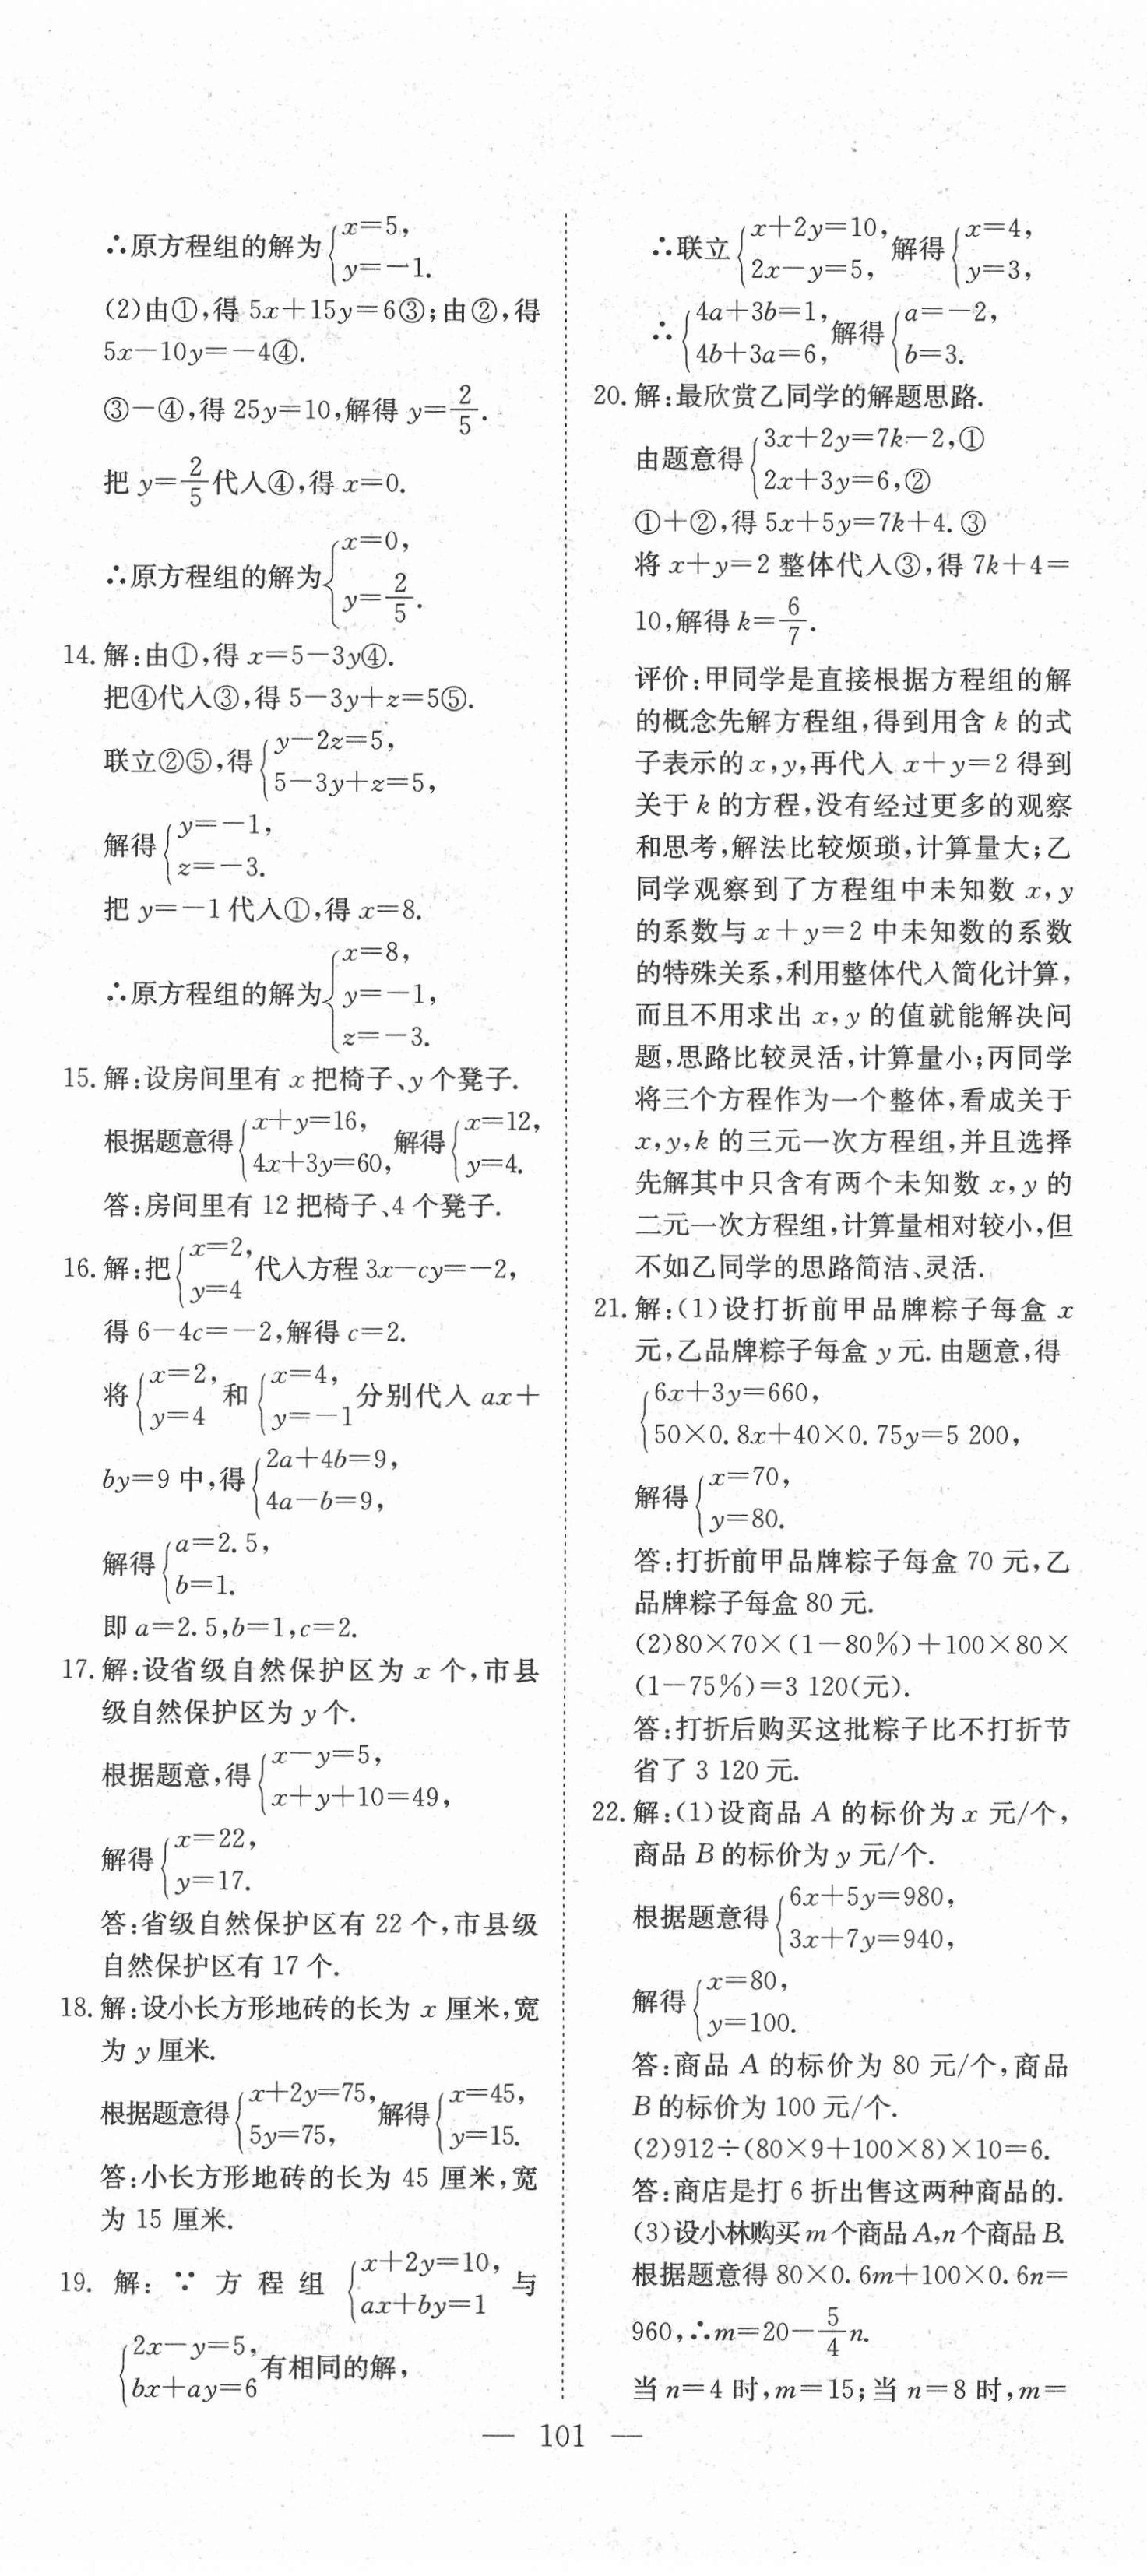 ∴原方程组的解为{x=5,
y=-1.
(2)由①,得 5x+15y=6③;由②,得
5x-10y=-4④.
③-④,得 25y=10,解得 y=2/5.
把 y=2/5代入④,得 x=0.
∴原方程组的解为{x=0,
y=2/5.
14. 解:由①,得 x=5-3y④.
把④代入③,得 5-3y+z=5⑤.
联立②⑤,得{y-2z=5,
5-3y+z=5,
解得{y=-1,
z=-3.
把 y=-1代入①,得 x=8.
∴原方程组的解为{x=8,
y=-1,
z=-3.
15. 解:设房间里有 x 把椅子、y 个凳子.
根据题意得{x+y=16, 4x+3y=60, 解得{x=12, y=4.
答:房间里有 12 把椅子、4 个凳子.
16. 解:把{x=2, y=4 代入方程 3x-cy=-2,
得 6-4c=-2,解得 c=2.
将{x=2, y=4 和{x=4, y=-1 分别代入 ax+
by=9 中,得{2a+4b=9,
4a-b=9,
解得{a=2.5,
b=1.
即 a=2.5,b=1,c=2.
17. 解:设省级自然保护区为 x 个,市县
级自然保护区为 y 个.
根据题意,得{x-y=5,
x+y+10=49,
解得{x=22,
y=17.
答:省级自然保护区有 22 个,市县级
自然保护区有 17 个.
18. 解:设小长方形地砖的长为 x 厘米,宽
为 y 厘米.
根据题意得{x+2y=75, 5y=75, 解得{x=45, y=15.
答:小长方形地砖的长为 45 厘米,宽
为 15 厘米.
19. 解:∵方程组{x+2y=10, ax+by=1 与
{2x-y=5, bx+ay=6 有相同的解,
∴联立{x+2y=10, 2x-y=5, 解得{x=4, y=3,
∴{4a+3b=1, 4b+3a=6, 解得{a=-2, b=3.
20. 解:最欣赏乙同学的解题思路.
由题意得{3x+2y=7k-2,①
2x+3y=6,②
①+②,得 5x+5y=7k+4.③
将 x+y=2 整体代入③,得 7k+4=
10,解得 k=6/7.
评价:甲同学是直接根据方程组的解
的概念先解方程组,得到用含 k 的式
子表示的 x,y,再代入 x+y=2 得到
关于 k 的方程,没有经过更多的观察
和思考,解法比较烦琐,计算量大;乙
同学观察到了方程组中未知数 x,y
的系数与 x+y=2 中未知数的系数
的特殊关系,利用整体代入简化计算,
而且不用求出 x,y 的值就能解决问
题,思路比较灵活,计算量小;丙同学
将三个方程作为一个整体,看成关于
x,y,k 的三元一次方程组,并且选择
先解其中只含有两个未知数 x,y 的
二元一次方程组,计算量相对较小,但
不如乙同学的思路简洁、灵活.
21. 解:(1)设打折前甲品牌粽子每盒 x
元,乙品牌粽子每盒 y 元.由题意,得
{6x+3y=660,
50×0.8x+40×0.75y=5 200,
解得{x=70,
y=80.
答:打折前甲品牌粽子每盒 70 元,乙
品牌粽子每盒 80 元.
(2)80×70×(1-80%)+100×80×
(1-75%)=3 120(元).
答:打折后购买这批粽子比不打折节
省了 3 120 元.
22. 解:(1)设商品 A 的标价为 x 元/个,
商品 B 的标价为 y 元/个.
根据题意得{6x+5y=980,
3x+7y=940,
解得{x=80,
y=100.
答:商品 A 的标价为 80 元/个,商品
B 的标价为 100 元/个.
(2)912÷(80×9+100×8)×10=6.
答:商店是打 6 折出售这两种商品的.
(3)设小林购买 m 个商品 A,n 个商品 B.
根据题意得 80×0.6m+100×0.6n=
960,∴m=20-5/4n.
当 n=4 时,m=15;当 n=8 时,m=
— 101 —